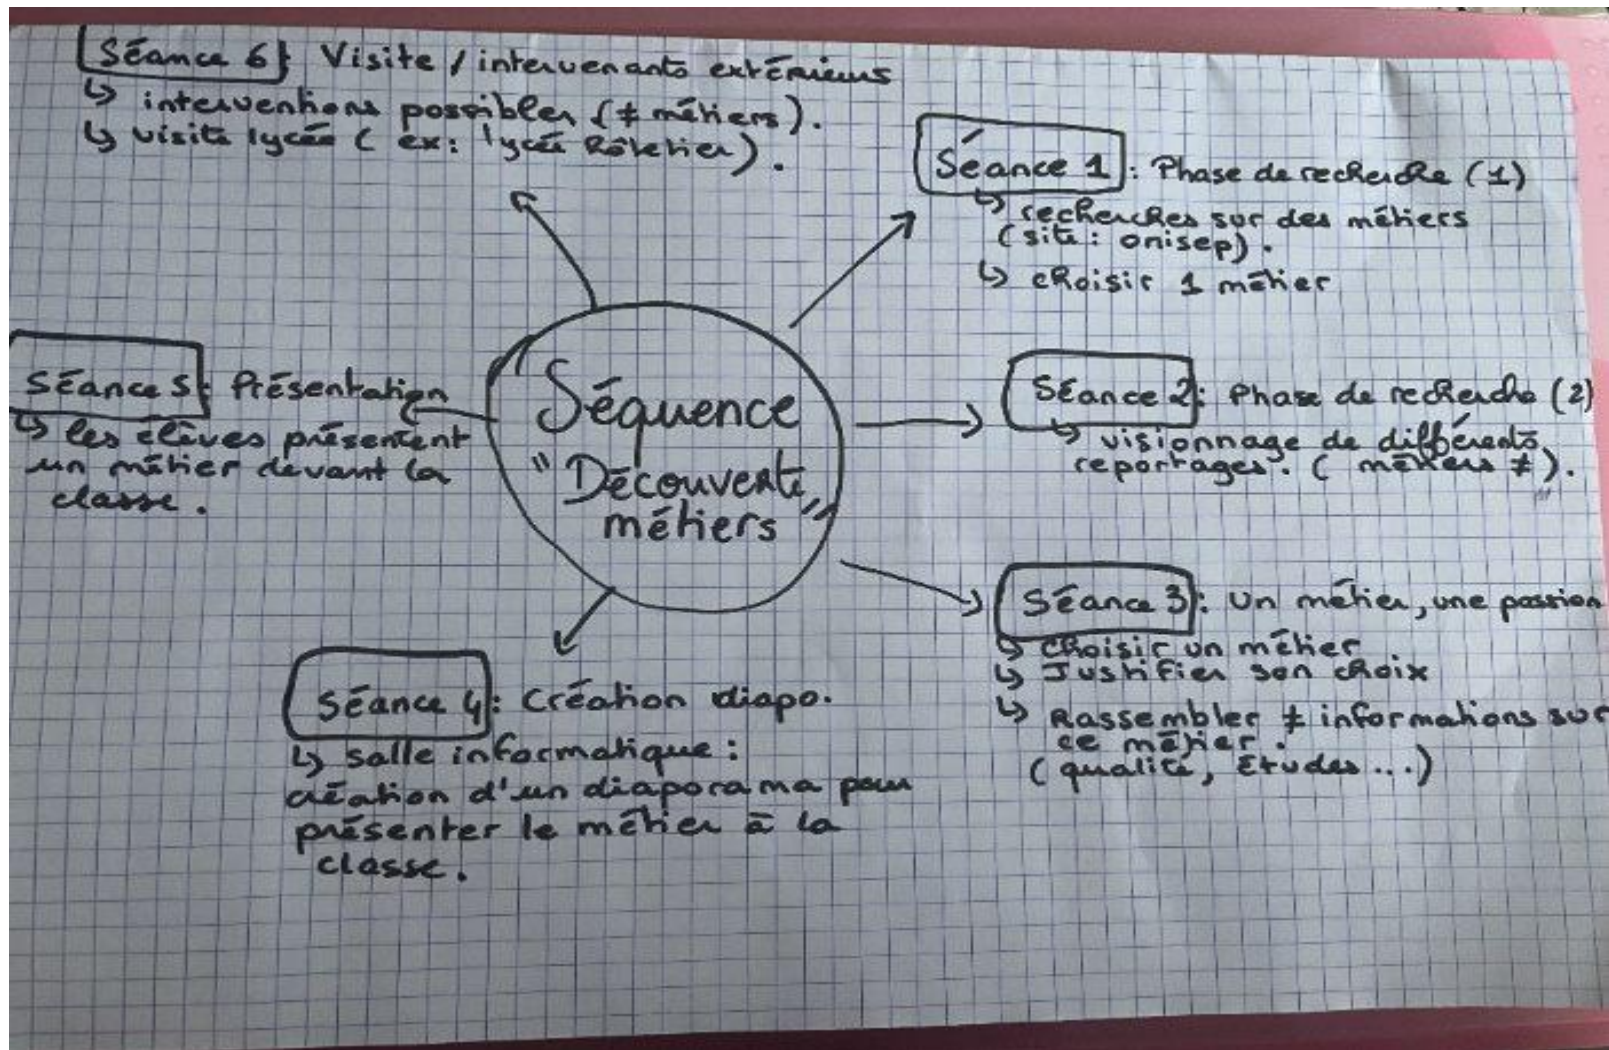 Séance 6 : Visite / intervenants extérieurs
↳ interventions possibles (≠ métiers).
↳ visite lycée ( ex: lycée).
Séance 1 : Phase de recherche (1)
↳ recherches sur des métiers
(site : onisep).
↳ choisir 1 métier
Séance 2 : Phase de recherche (2)
↳ visionnage de différents
reportages. ( métiers ≠ ).
Séance 3 : Un métier, une passion
↳ choisir un métier
↳ Justifier son choix
↳ Rassembler ≠ informations sur
ce métier.
( qualité, Études ...)
Séance 4 : Création diapo.
↳ salle informatique :
création d'un diaporama pour
présenter le métier à la
classe.
Séance 5 : Présentation
↳ les élèves présentent
un métier devant la
classe.
Séquence
"Découverte
métiers"